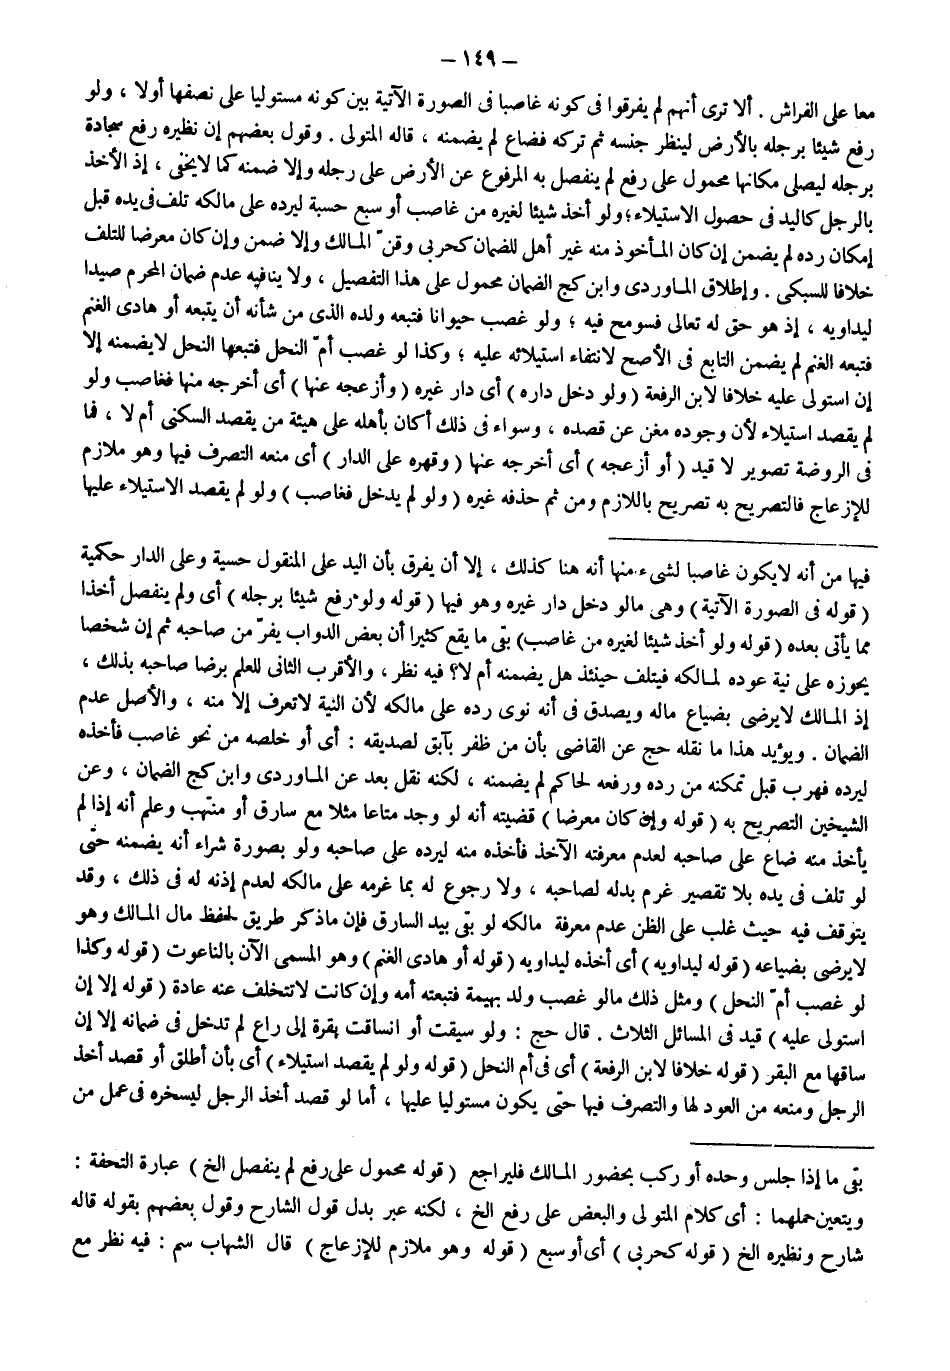 – ١٤٩ –
معا على الفراش . ألا ترى أنهم لم يفرقوا فى كونه غاصبا فى الصورة الآتية بين كونه مستوليا على نصفها أولا ، ولو
رفع شيئا برجله بالأرض لينظر جنسه ثم تركه فضاع لم يضمنه ، قاله المتولى . وقول بعضهم إن نظيره رفع سجادة
برجله ليصلى مكانها محمول على رفع لم ينفصل به المرفوع عن الأرض على رجله وإلا ضمنه كما لايخفى ، إذ الأخذ
بالرجل كاليد فى حصول الاستيلاء ؛ ولو أخذ شيئا لغيره من غاصب أو سبع حسبة ليرده على مالكه تلف فى يده قبل
إمكان رده لم يضمن إن كان المأخوذ منه غير أهل للضمان كحربى وقنّ المالك وإلا ضمن وإن كان معرضا للتلف
خلافا للسبكى . وإطلاق الماوردى وابن كج الضمان محمول على هذا التفصيل ، ولا ينافيه عدم ضمان المحرم صيدا
ليداويه ، إذ هو حق له تعالى فسومح فيه ؛ ولو غصب حيوانا فتبعه ولده الذى من شأنه أن يتبعه أو هادى الغنم
فتبعه الغنم لم يضمن التابع فى الأصح لانتفاء استيلائه عليه ؛ وكذا لو غصب أمّ النحل فتبعها النحل لايضمنه إلا
إن استولى عليه خلافا لابن الرفعة ( ولو دخل داره ) أى دار غيره ( وأزعجه عنها ) أى أخرجه منها فغاصب ولو
لم يقصد استيلاء لأن وجوده مغن عن قصده ، وسواء فى ذلك أكان بأهله على هيئة من يقصد السكنى أم لا ، فما
فى الروضة تصوير لا قيد ( أو أزعجه ) أى أخرجه عنها ( وقهره على الدار ) أى منعه التصرف فيها وهو ملازم
للإزعاج فالتصريح به تصريح باللازم ومن ثم حذفه غيره ( ولو لم يدخل فغاصب ) ولو لم يقصد الاستيلاء عليها
فيها من أنه لايكون غاصبا لشىء منها أنه هنا كذلك ، إلا أن يفرق بأن اليد على المنقول حسية وعلى الدار حكمية
( قوله فى الصورة الآتية ) وهى مالو دخل دار غيره وهو فيها ( قوله ولو رفع شيئا برجله ) أى ولم ينفصل أخذا
مما يأتى بعده ( قوله ولو أخذ شيئا لغيره من غاصب) بقى ما يقع كثيرا أن بعض الدواب يفرّ من صاحبه ثم إن شخصا
يحوزه على نية عوده لمالكه فيتلف حينئذ هل يضمنه أم لا؟ فيه نظر ، والأقرب الثانى للعلم برضا صاحبه بذلك ،
إذ المالك لايرضى بضياع ماله ويصدق فى أنه نوى رده على مالكه لأن النية لاتعرف إلا منه ، والأصل عدم
الضمان . ويؤيد هذا ما نقله حج عن القاضى بأن من ظفر بآبق لصديقه : أى أو خلصه من نحو غاصب فأخذه
ليرده فهرب قبل تمكنه من رده ورفعه لحاكم لم يضمنه ، لكنه نقل بعد عن الماوردى وابن كج الضمان ، وعن
الشيخين التصريح به ( قوله وإن كان معرضا ) قضيته أنه لو وجد متاعا مثلا مع سارق أو منتهب وعلم أنه إذا لم
يأخذ منه ضاع على صاحبه لعدم معرفته الآخذ فأخذه منه ليرده على صاحبه ولو بصورة شراء أنه يضمنه حتى
لو تلف فى يده بلا تقصير غرم بدله لصاحبه ، ولا رجوع له بما غرمه على مالكه لعدم إذنه له فى ذلك ، وقد
يتوقف فيه حيث غلب على الظن عدم معرفة مالكه لو بقى بيد السارق فإن ماذكر طريق لحفظ مال المالك وهو
لايرضى بضياعه ( قوله ليداويه ) أى أخذه ليداويه ( قوله أو هادى الغنم ) وهو المسمى الآن بالناعوت ( قوله وكذا
لو غصب أمّ النحل ) ومثل ذلك مالو غصب ولد بهيمة فتبعته أمه وإن كانت لاتتخلف عنه عادة ( قوله إلا إن
استولى عليه ) قيد فى المسائل الثلاث . قال حج : ولو سيقت أو انساقت بقرة إلى راع لم تدخل فى ضمانه إلا إن
ساقها مع البقر ( قوله خلافا لابن الرفعة ) أى فى أم النحل ( قوله ولو لم يقصد استيلاء ) أى بأن أطلق أو قصد أخذ
الرجل ومنعه من العود لها والتصرف فيها حتى يكون مستوليا عليها ، أما لو قصد أخذ الرجل ليسخره فى عمل من
بقى ما إذا جلس وحده أو ركب بحضور المالك فليراجع ( قوله محمول على رفع لم ينفصل الخ ) عبارة التحفة :
ويتعين حملهما : أى كلام المتولى والبعض على رفع الخ ، لكنه عبر بدل قول الشارح وقول بعضهم بقوله قاله
شارح ونظيره الخ ( قوله كحربى ) أى أو سبع ( قوله وهو ملازم للإزعاج ) قال الشهاب سم : فيه نظر مع